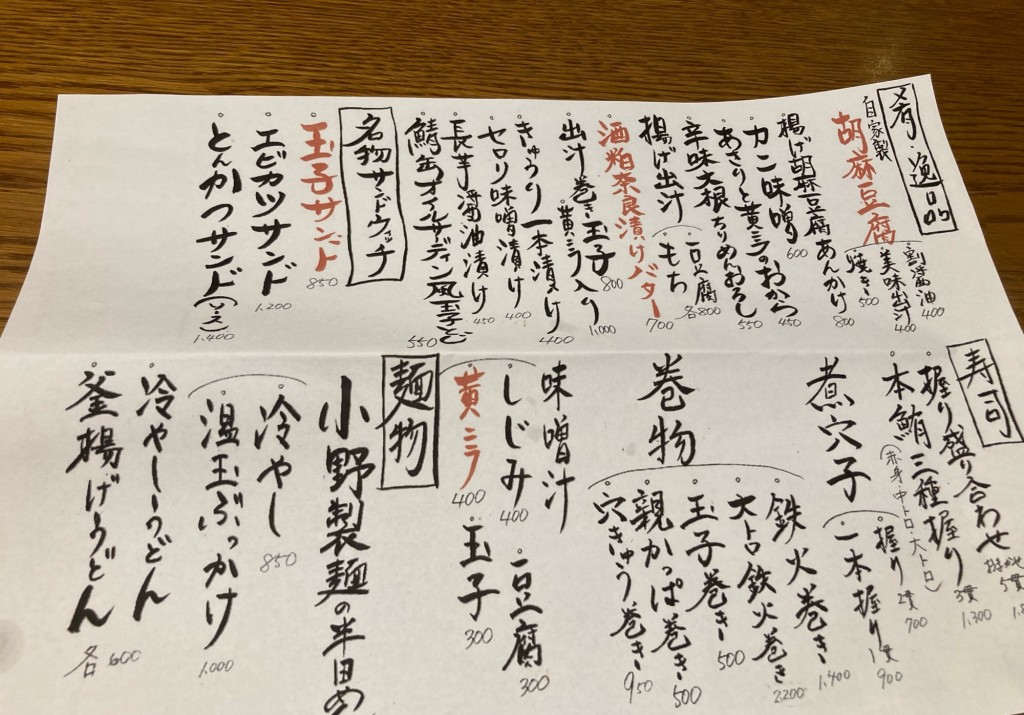 肴・逸品
自家製
胡麻豆腐
割醤油 400
美味出汁 400
焼き 500
揚げ胡麻豆腐あんかけ 800
カニ味噌 600
あさりと黄ニラのおから 450
辛味大根ちりめんおろし 550
揚げ出汁
豆腐
もち
各800
酒粕奈良漬けバター 700
出汁巻き玉子 800
黄ニラ入り 1,000
きゅうり一本漬け 400
セロリ味噌漬け 400
長芋醤油漬け 450
鯖缶オイルサーディン風玉ねぎ 550
名物サンドウィッチ
玉子サンド 850
エビカツサンド 1,200
とんかつサンド(ヒレ) 1,400
寿司
握り盛り合わせ
おまかせ
5貫
3貫 1,300
本鮪三種握り
(赤身・中トロ・大トロ)
煮穴子
握り 2貫 700
一本握り 1貫 900
巻物
鉄火巻き 1,400
大トロ鉄火巻き 2,200
玉子巻き 500
親かっぱ巻き 500
穴きゅう巻き 950
味噌汁
しじみ 400
豆腐 300
黄ニラ 400
玉子 300
麺物
小野製麺の半田め
冷やし 850
温玉ぶっかけ 1,000
冷やしうどん
釜揚げうどん
各600